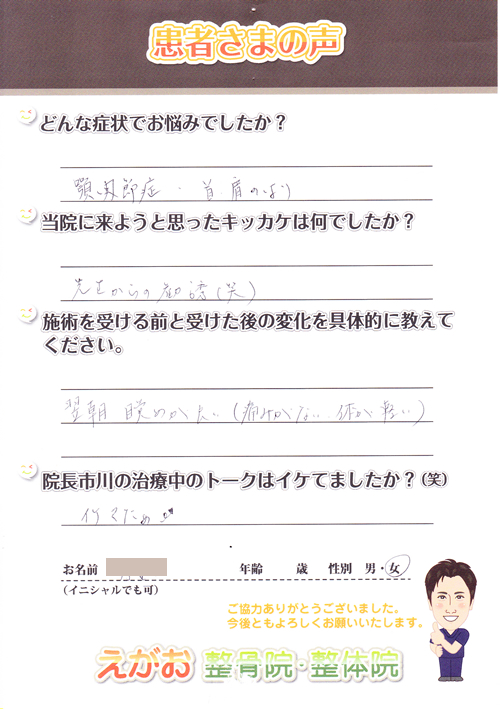 患者さまの声
どんな症状でお悩みでしたか？
顎関節症・首・肩のはり
当院に来ようと思ったキッカケは何でしたか？
先生からの勧誘(笑)
施術を受ける前と受けた後の変化を具体的に教えて
ください。
翌朝 目覚めが良い(痛みがない、体が軽い)
院長市川の治療中のトークはイケてましたか？(笑)
お名前 年齢 歳 性別 男・女
(イニシャルでも可)
ご協力ありがとうございました。
今後ともよろしくお願いいたします。
えがお 整骨院・整体院